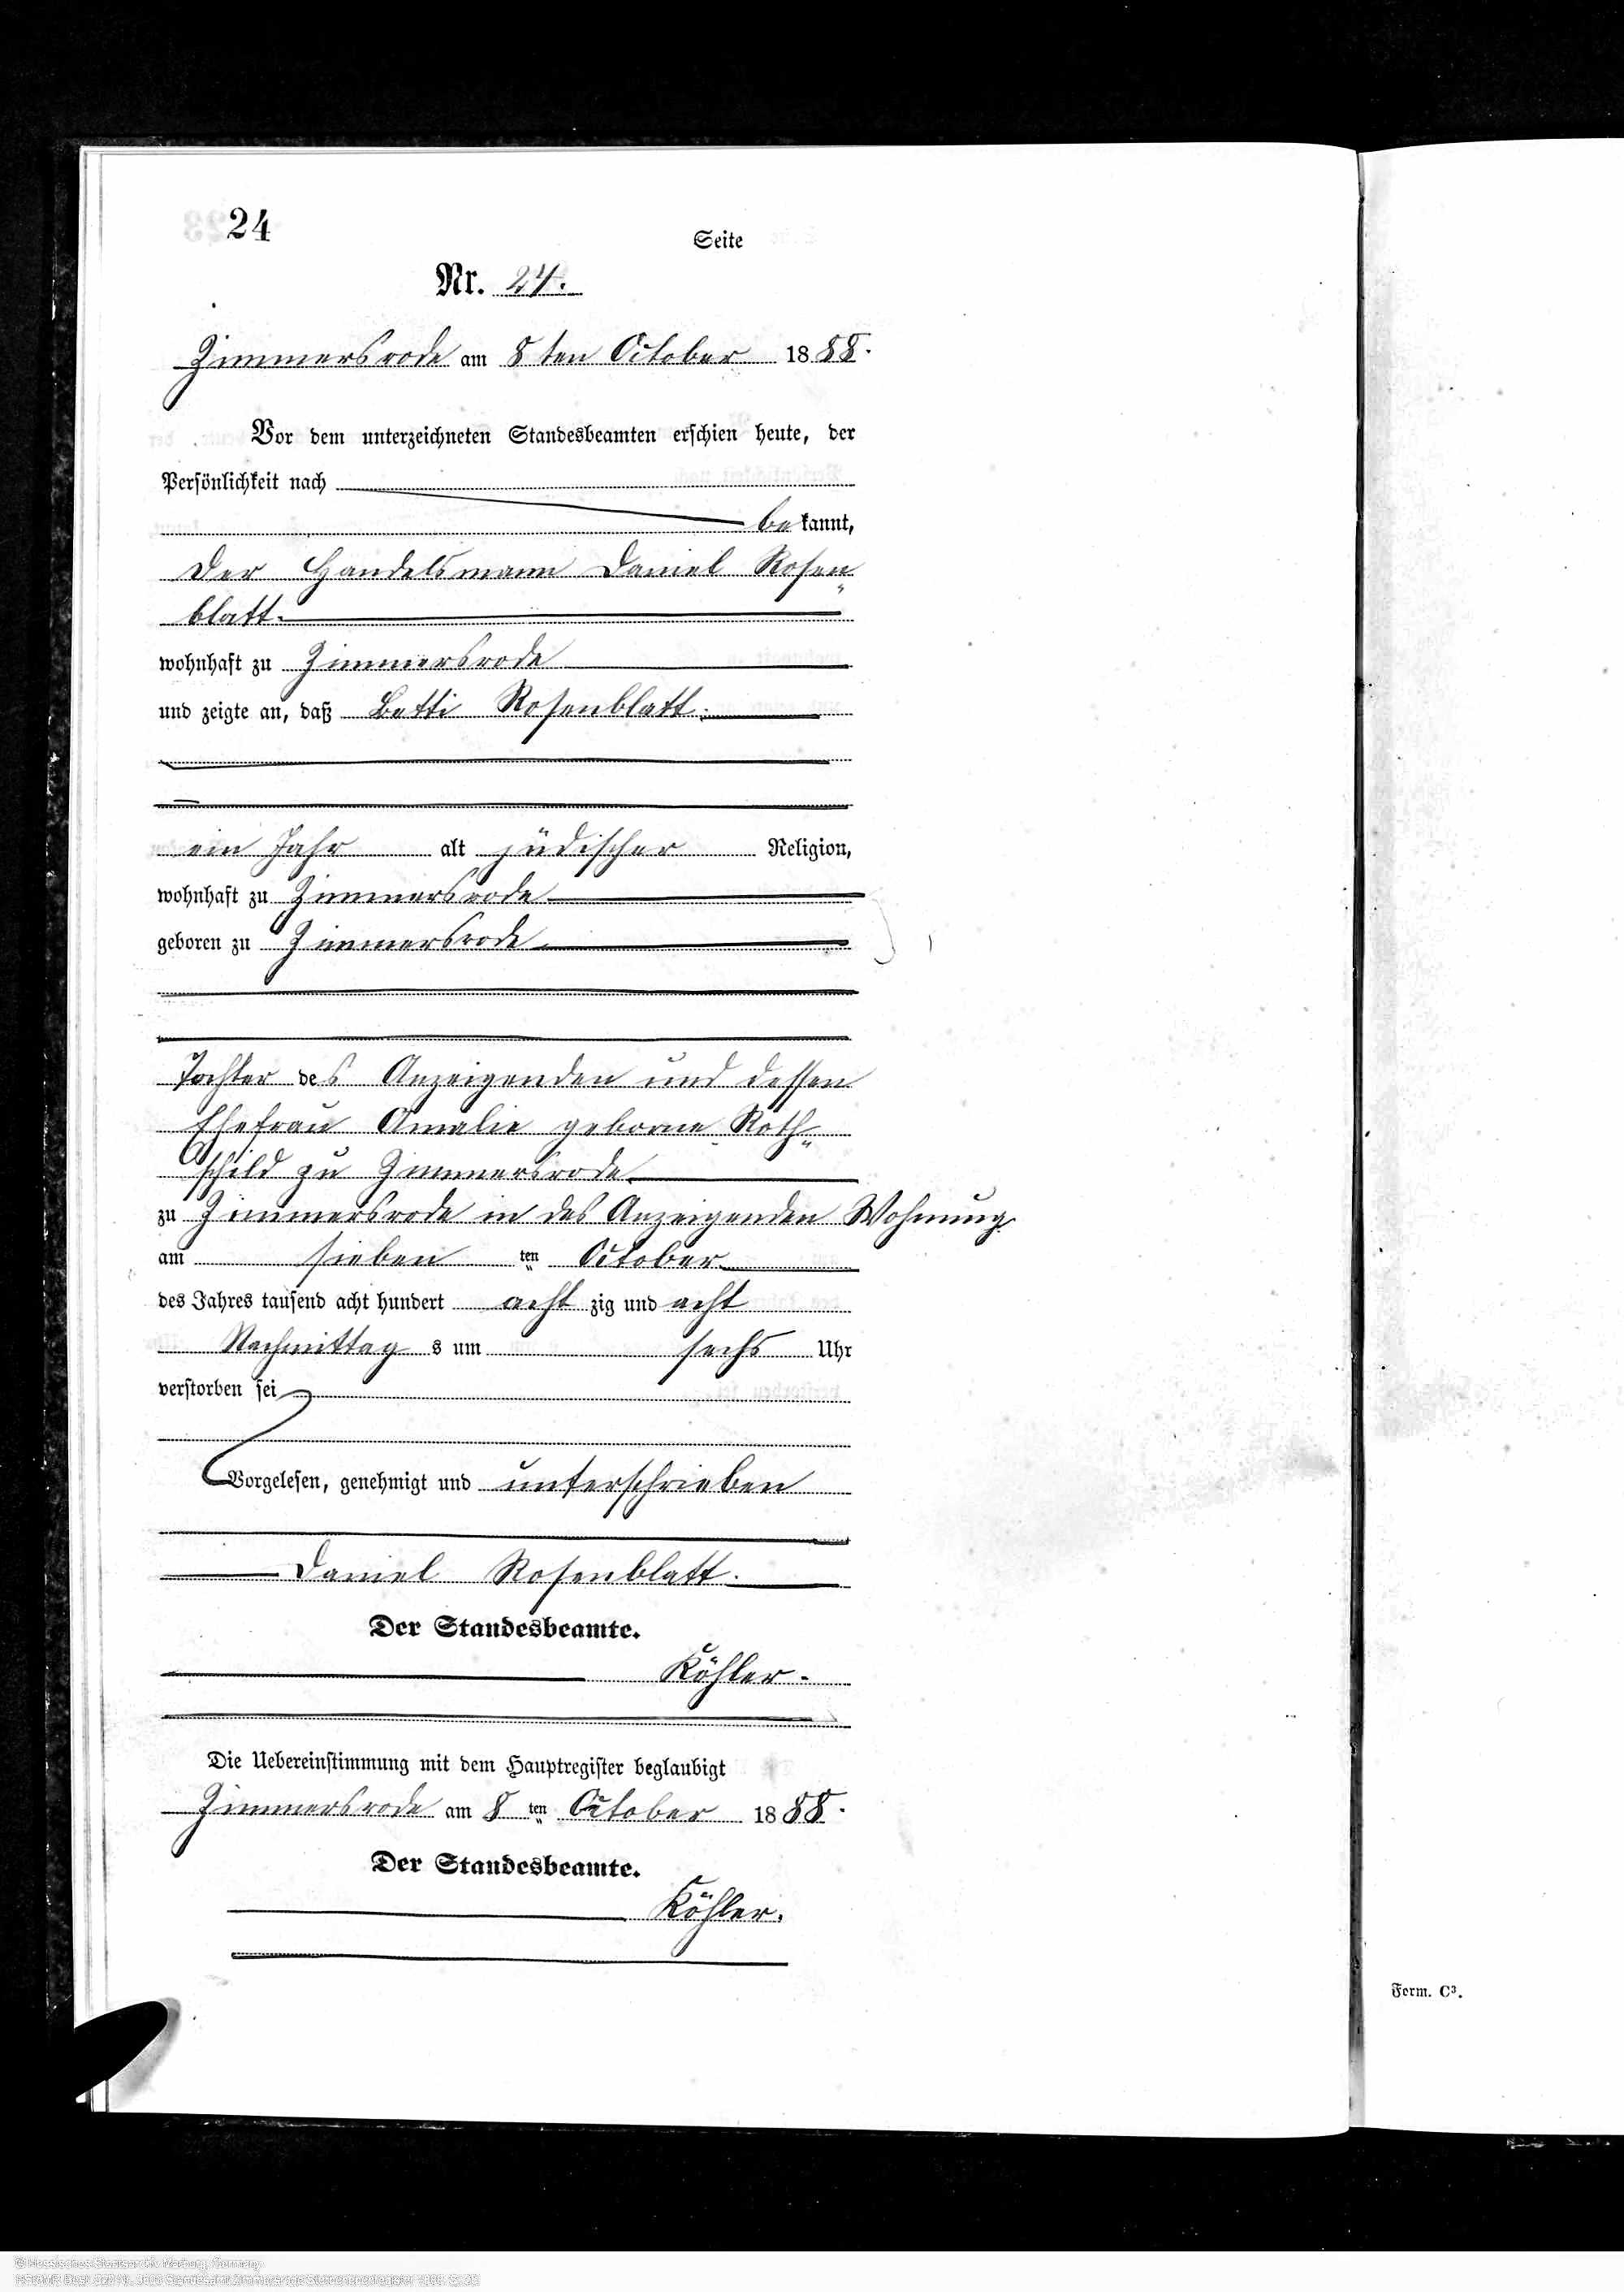 24
Seite
Nr. 24.
Zimmersrode am 8 ten October 1888.
Vor dem unterzeichneten Standesbeamten erschien heute, der
Persönlichkeit nach
bekannt,
der Handelsmann Daniel Rosen„
blatt.
wohnhaft zu Zimmersrode
und zeigte an, daß Betti Rosenblatt.
ein Jahr alt jüdischer Religion,
wohnhaft zu Zimmersrode
geboren zu Zimmersrode
Tochter des Anzeigenden und dessen
Ehefrau Amalie geborne Roth„
schild zu Zimmersrode
zu Zimmersrode in des Anzeigenden Wohnung
am sieben ten October
des Jahres tausend acht hundert acht zig und acht
Nachmittag s um sechs Uhr
verstorben sei
Vorgelesen, genehmigt und unterschrieben
Daniel Rosenblatt.
Der Standesbeamte.
Köhler.
Die Uebereinstimmung mit dem Hauptregister beglaubigt
Zimmersrode am 8 ten October 1888.
Der Standesbeamte.
Köhler.
Form. C³.
© Hessisches Staatsarchiv Marburg, Germany